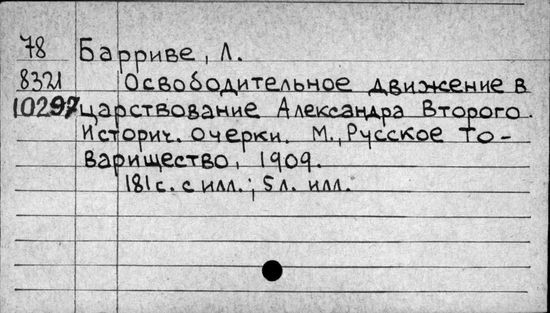 78 Барриве, Л.
8321 Освободительное движение в
10297 царствование Александра Второго.
Историч. очерки. М., Русское То-
варищество, 1909.
181 с. с илл.; 5 л. илл.